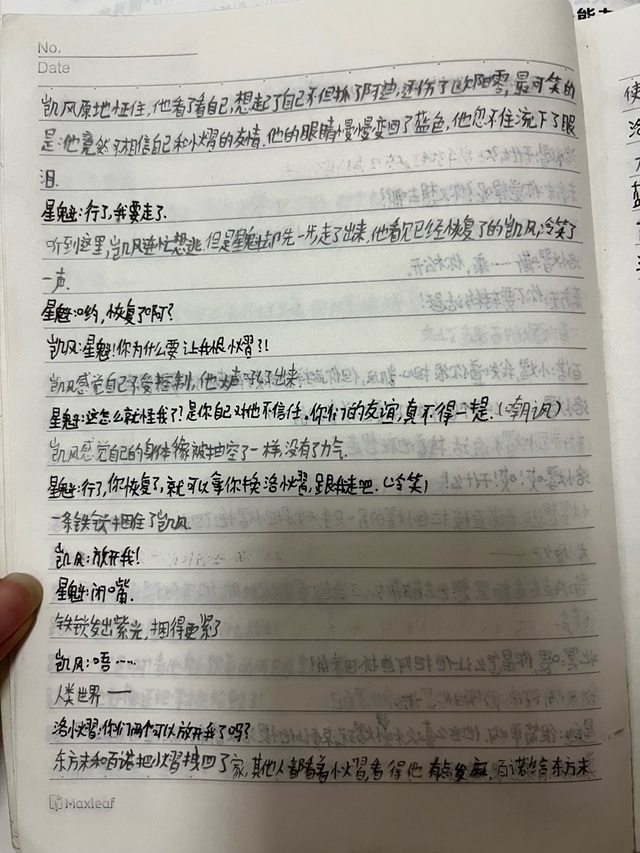 No.
Date
凯风原地怔住，他看了看自己，想起了自己不但抓了阿迪，还伤了欧阳零，最可笑的
是：他竟然不相信自己和小熠的友情，他的眼睛慢慢变回了蓝色，他忍不住流下了眼
泪.
星魁：行了，我要走了.
听到这里，凯风连忙想逃，但是星魁却先一步走了出来，他看见已经恢复了的凯风，冷笑了
一声.
星魁：哟，恢复了啊？
凯风：星魁！你为什么要让我恨小熠？！
凯风感觉自己不受控制，他大声吼了出来.
星魁：这怎么就怪我了？是你自己对他不信任，你们的友谊，真不得一提.（嘲讽）
凯风感觉自己的身体像被抽空了一样，没有了力气.
星魁：行了，你恢复了，就可以拿你换洛小熠，跟我走吧.（冷笑）
一条铁锁捆住了凯风.
凯风：放开我！
星魁：闭嘴.
铁锁发出紫光，捆得更紧了
凯风：唔……
人类世界——
洛小熠：你们两个可以放开我了吗？
东方末和百诺把小熠拽回了家，其他人都看着小熠，看得他有点发麻，百诺给东方末
Maxleaf
能力
使
洛
蓝